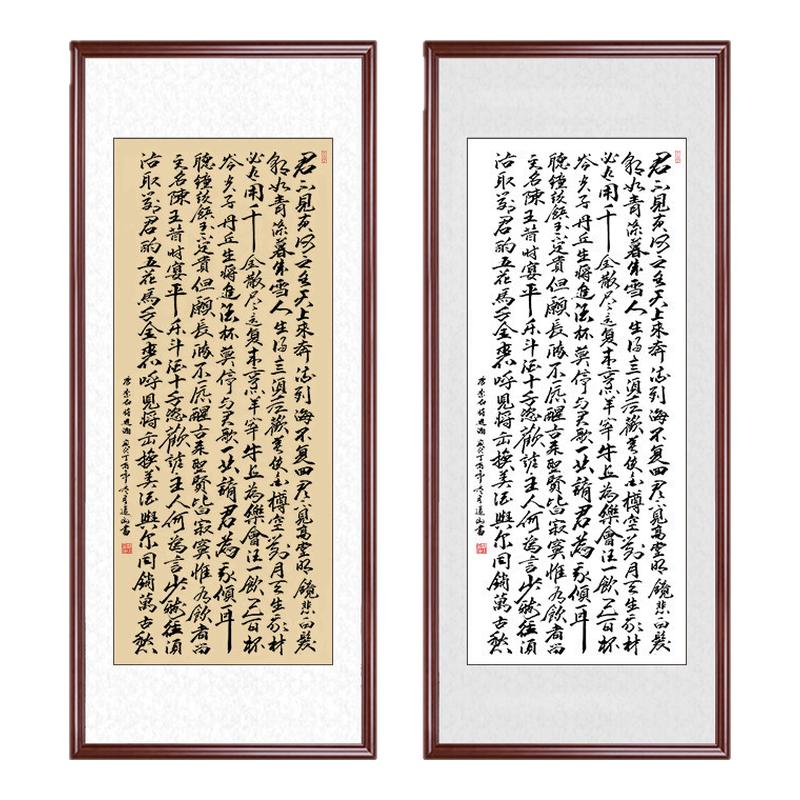 君不見黃河之水天上來奔流到海不复回君不見高堂明鏡悲白髮
朝如青絲暮成雪人生得意須盡歡莫使金樽空對月天生我材
必有用千金散尽还复来烹羊宰牛且為樂會須一飲三百杯
岑夫子丹丘生將進酒杯莫停与君歌一曲請君為我傾耳
聽鐘鼓饌玉不足貴但願長醉不願醒古来聖賢皆寂寞惟有飲者留
其名陳王昔時宴平乐斗酒十千恣歡謔主人何為言少錢徑須
沽取對君酌五花馬千金裘呼兒將出換美酒與尔同銷萬古愁
李白詩 丁酉年 書
君不見黃河之水天上來奔流到海不复回君不見高堂明鏡悲白髮
朝如青絲暮成雪人生得意須盡歡莫使金樽空對月天生我材
必有用千金散尽还复来烹羊宰牛且為樂會須一飲三百杯
岑夫子丹丘生將進酒杯莫停与君歌一曲請君為我傾耳
聽鐘鼓饌玉不足貴但願長醉不願醒古来聖賢皆寂寞惟有飲者留
其名陳王昔時宴平乐斗酒十千恣歡謔主人何為言少錢徑須
沽取對君酌五花馬千金裘呼兒將出換美酒與尔同銷萬古愁
李白詩 丁酉年 書